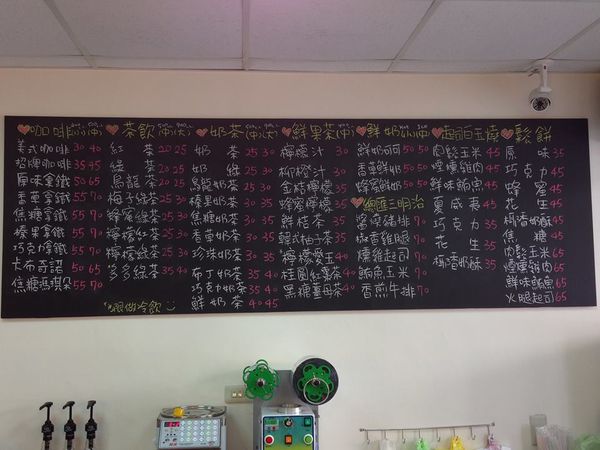 咖啡(小)(中)
美式咖啡 30 40
招牌咖啡 35 45
原味拿鐵 50 65
香草拿鐵 55 70
蜂蜜拿鐵 55 70
焦糖拿鐵 55 70
榛果拿鐵 55 70
巧克力拿鐵 55 70
卡布奇諾 50 65
焦糖瑪琪朵 55 70
茶飲(中)(大)
紅茶 20 25
綠茶 20 25
烏龍茶 20 25
梅子綠茶 25 30
蜂蜜綠茶 25 30
檸檬紅茶 25 30
檸檬綠茶 25 30
多多綠茶 25 30
奶茶(中)(大)
奶茶 25 30
奶綠 25 30
烏龍奶茶 25 30
榛果奶茶 30 35
焦糖奶茶 30 35
香草奶茶 30 35
珍珠奶茶 25 30
布丁奶茶 35 40
巧克力奶茶 35 40
鮮奶茶 40 45
鮮果茶(中)
檸檬汁 30
柳橙汁 30
金桔檸檬 35
蜂蜜檸檬 35
鮮桔茶 35
韓式柚子茶 35
檸檬愛玉 40
桂圓紅棗茶 40
黑糖薑母茶 40
鮮奶(小)
鮮奶可可 50 50
香草鮮奶 50 50
蜂蜜鮮奶 50 50
總匯三明治
醬燒豬排 70
椒香雞腿 70
燻雞起司 70
鮪魚玉米 70
香煎牛排 70
起司白玉燒
肉鬆玉米 45
煙燻雞肉 45
鮮味鮪魚 45
夏威夷 45
巧克力 35
花生 35
椰香奶酥 35
鬆餅
原味 45
巧克力 45
蜂蜜 45
花生 45
椰香奶酥 45
焦糖 45
肉鬆玉米 65
煙燻雞肉 65
鮮味鮪魚 65
火腿起司 65